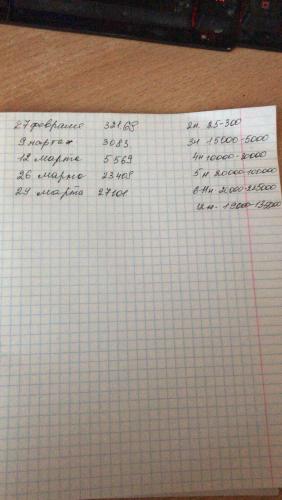 27 февраля 32168
9 марта 3083
12 марта 5569
26 марта 23408
29 марта 27101
2н. 25-300
3н 15000-5000
4н 10000-20000
5н 20000-100000
6-11н 20000-225000
12н. 19000-135000